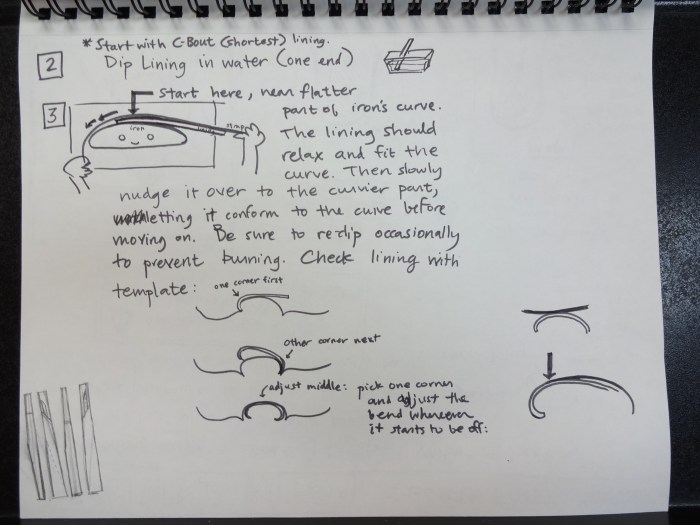 * Start with C-Bout (shortest) lining.
2
Dip Lining in water (one end)
3
Start here, near flatter
part of iron's curve.
iron
The lining should
relax and fit the
curve. Then slowly
nudge it over to the curvier part,
letting it conform to the curve before
moving on. Be sure to redip occasionally
to prevent burning. Check lining with
template:
one corner first
other corner next
adjust middle: pick one corner
and adjust the
bend wherever
it starts to be off: